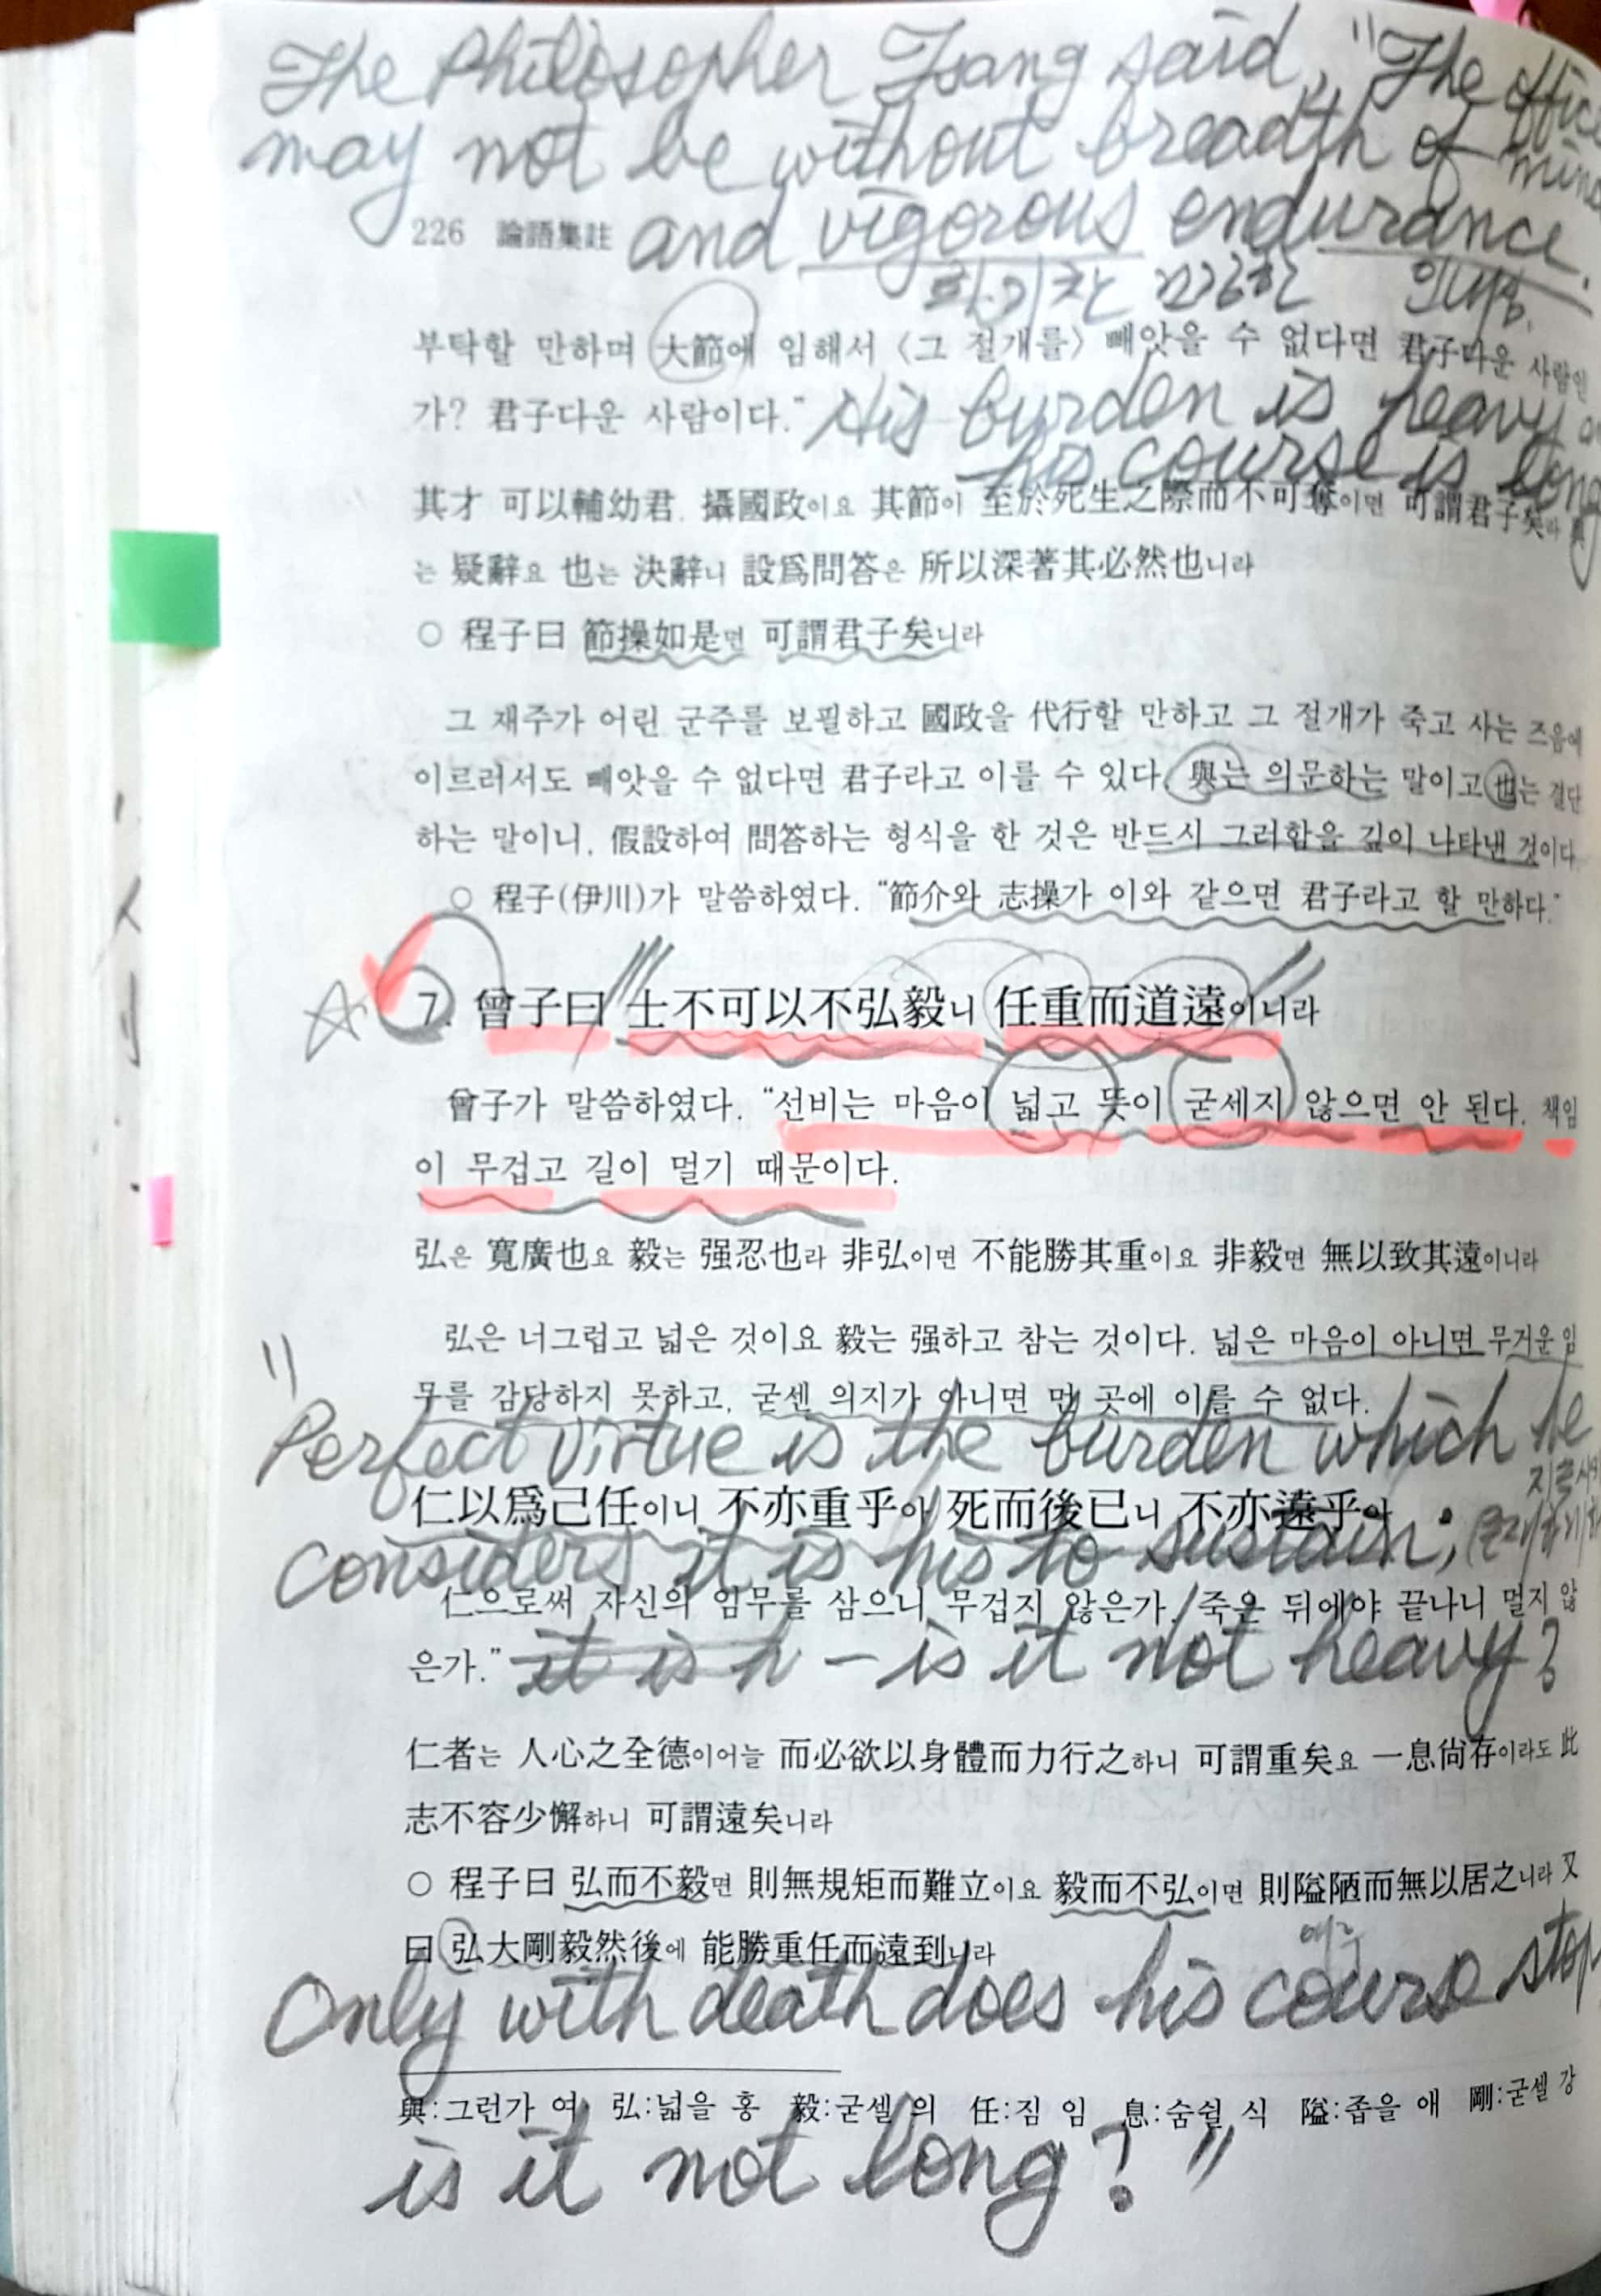 The Philosopher Tsang said, "The
may not be without breadth of mind
226 論語集註
and vigorous endurance.
인내심.
부탁할 만하며 大節에 임해서 〈그 절개를〉 빼앗을 수 없다면 君子다운 사람인
가? 君子다운 사람이다."
His burden is heavy
his course is long
其才 可以輔幼君, 攝國政이요 其節이 至於死生之際而不可奪이면 可謂君子矣라 與
는 疑辭요 也는 決辭니 設爲問答은 所以深著其必然也니라
○ 程子曰 節操如是면 可謂君子矣니라
그 재주가 어린 군주를 보필하고 國政을 代行할 만하고 그 절개가 죽고 사는 즈음에
이르러서도 빼앗을 수 없다면 君子라고 이를 수 있다. 與는 의문하는 말이고 也는 결단
하는 말이니, 假設하여 問答하는 형식을 한 것은 반드시 그러함을 깊이 나타낸 것이다.
○ 程子(伊川)가 말씀하였다. "節介와 志操가 이와 같으면 君子라고 할 만하다."
7. 曾子曰 士不可以不弘毅니 任重而道遠이니라
曾子가 말씀하였다. "선비는 마음이 넓고 뜻이 굳세지 않으면 안 된다. 책임
이 무겁고 길이 멀기 때문이다.
弘은 寬廣也요 毅는 强忍也라 非弘이면 不能勝其重이요 非毅면 無以致其遠이니라
弘은 너그럽고 넓은 것이요 毅는 强하고 참는 것이다. 넓은 마음이 아니면 무거운 임
무를 감당하지 못하고, 굳센 의지가 아니면 먼 곳에 이를 수 없다.
"Perfect virtue is the burden which he
仁以爲己任이니 不亦重乎아 死而後已니 不亦遠乎아
considers it is his to sustain;
仁으로써 자신의 임무를 삼으니 무겁지 않은가. 죽은 뒤에야 끝나니 멀지 않
은가."
it is h – is it not heavy?
仁者는 人心之全德이어늘 而必欲以身體而力行之하니 可謂重矣요 一息尙存이라도 此
志不容少懈하니 可謂遠矣니라
○ 程子曰 弘而不毅면 則無規矩而難立이요 毅而不弘이면 則隘陋而無以居之니라 又
曰 弘大剛毅然後에 能勝重任而遠到니라
Only with death does his course stop
與:그런가 여 弘:넓을 홍 毅:굳셀 의 任:짐 임 息:숨쉴 식 隘:좁을 애 剛:굳셀 강
is it not long?"